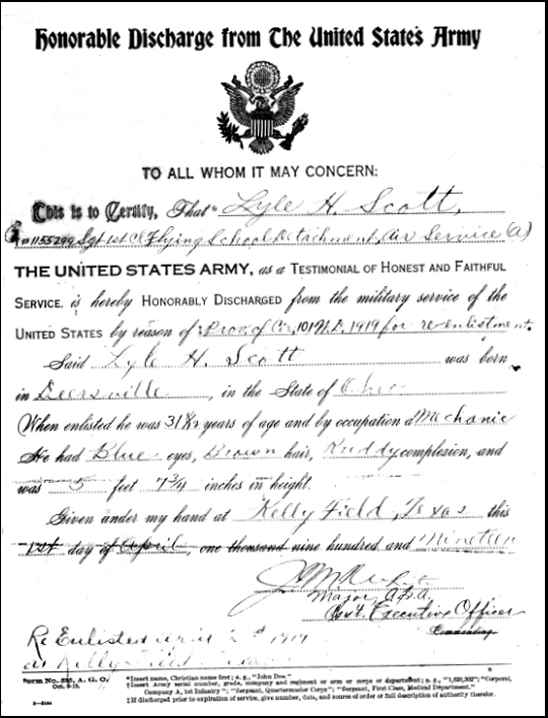 Honorable Discharge from The United States Army
TO ALL WHOM IT MAY CONCERN:
This is to Certify, That* Lyle H. Scott,
#1155299 Sgt 1st Cl Flying School Detachment, Air Service (A)
THE UNITED STATES ARMY, as a TESTIMONIAL OF HONEST AND FAITHFUL
SERVICE, is hereby HONORABLY DISCHARGED from the military service of the
UNITED STATES by reason of 1919 for re-enlistment.
Said Lyle H. Scott was born
in Deersville, in the State of Ohio
When enlisted he was 31 years of age and by occupation a Mechanic
He had Blue eyes, Brown hair, Ruddy complexion, and
was 5 feet 7 3/4 inches in height.
Given under my hand at Kelly Field, Texas this
1st day of April, one thousand nine hundred and Nineteen
Major
Executive Officer
Commanding.
Re Enlisted 1919
at Kelly Field
Form No. 525, A. G. O.
Oct. 9-18.
*Insert name, Christian name first; e. g., "John Doe."
†Insert Army serial number, grade, company and regiment or arm or corps or department; e. g., "1,620,302"; "Corporal,
Company A, 1st Infantry"; "Sergeant, Quartermaster Corps"; "Sergeant, First Class, Medical Department."
‡If discharged prior to expiration of service, give number, date, and source of order or full description of authority therefor.